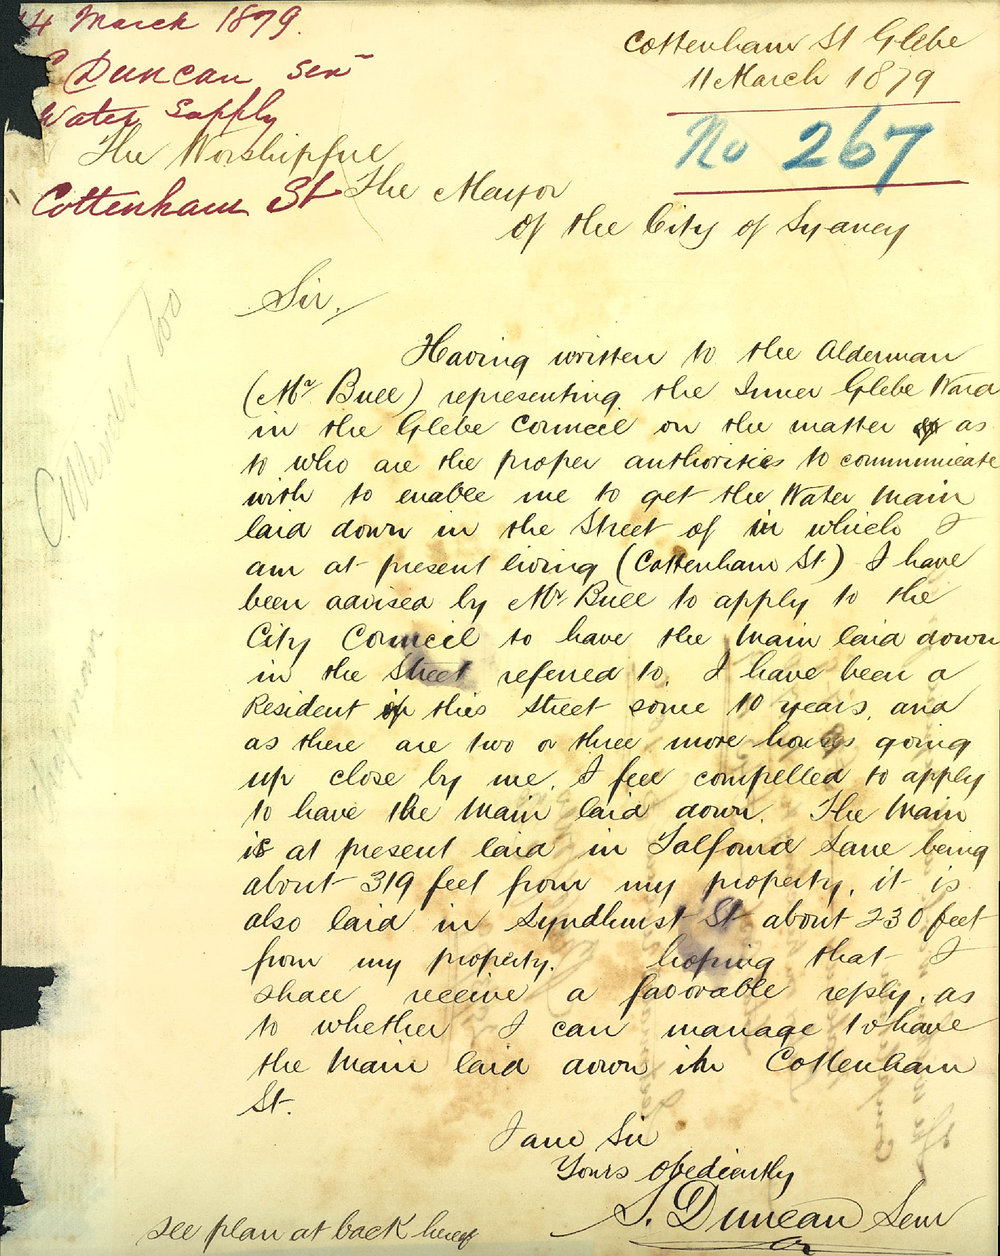 14 March 1879.
Duncan Senr
Water Supply
Cottenham St
Cottenham St Glebe
11 March 1879
No 267
The Worshipful
The Mayor
of the City of Sydney
Sir,
Having written to the Alderman
(Mr Bull) representing the Inner Glebe Ward
in the Glebe Council on the matter as
to who are the proper authorities to communicate
with to enable me to get the Water Main
laid down in the Street of in which I
am at present living (Cottenham St) I have
been advised by Mr Bull to apply to the
City Council to have the Main laid down
in the Street referred to. I have been a
Resident in this street some 10 years, and
as there are two or three more houses going
up close by me, I feel compelled to apply
to have the Main laid down. The Main
is at present laid in Talfourd Lane being
about 319 feet from my property, it is
also laid in Lyndhurst St about 230 feet
from my property. hoping that I
shall receive a favorable reply, as
to whether I can manage to have
the Main laid down in Cottenham
St.
I am Sir
Yours obediently
S. Duncan Senr
see plan at back hereof